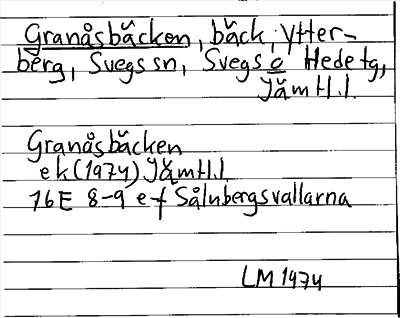 Granåsbäcken, bäck, Ytter-
berg, Svegs sn, Svegs o Hede tg,
Jämtl.l.
Granåsbäcken
ek (1974) Jämtl.l
16E 8-9 e-f Sålnbergsvallarna
LM 1974